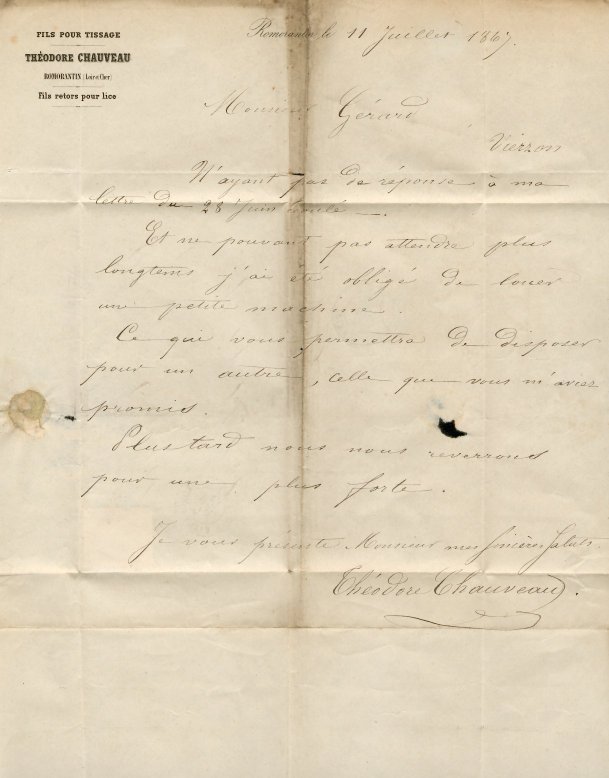 FILS POUR TISSAGE
THÉODORE CHAUVEAU
ROMORANTIN (Loir et Cher)
Fils retors pour lice
Romorantin le 11 Juillet 1867.
Monsieur Gérard
Vierzon
N'ayant pas de réponse à ma
lettre du 28 Juin écoulé.
Et ne pouvant pas attendre plus
longtems j'ai été obligé de louer
une petite machine.
Ce qui vous permettra de disposer
pour un autre, celle que vous m'aviez
promis.
Plus tard nous nous reverrons
pour une plus forte.
Je vous présente Monsieur mes Sincères Saluts.
Théodore Chauveau.